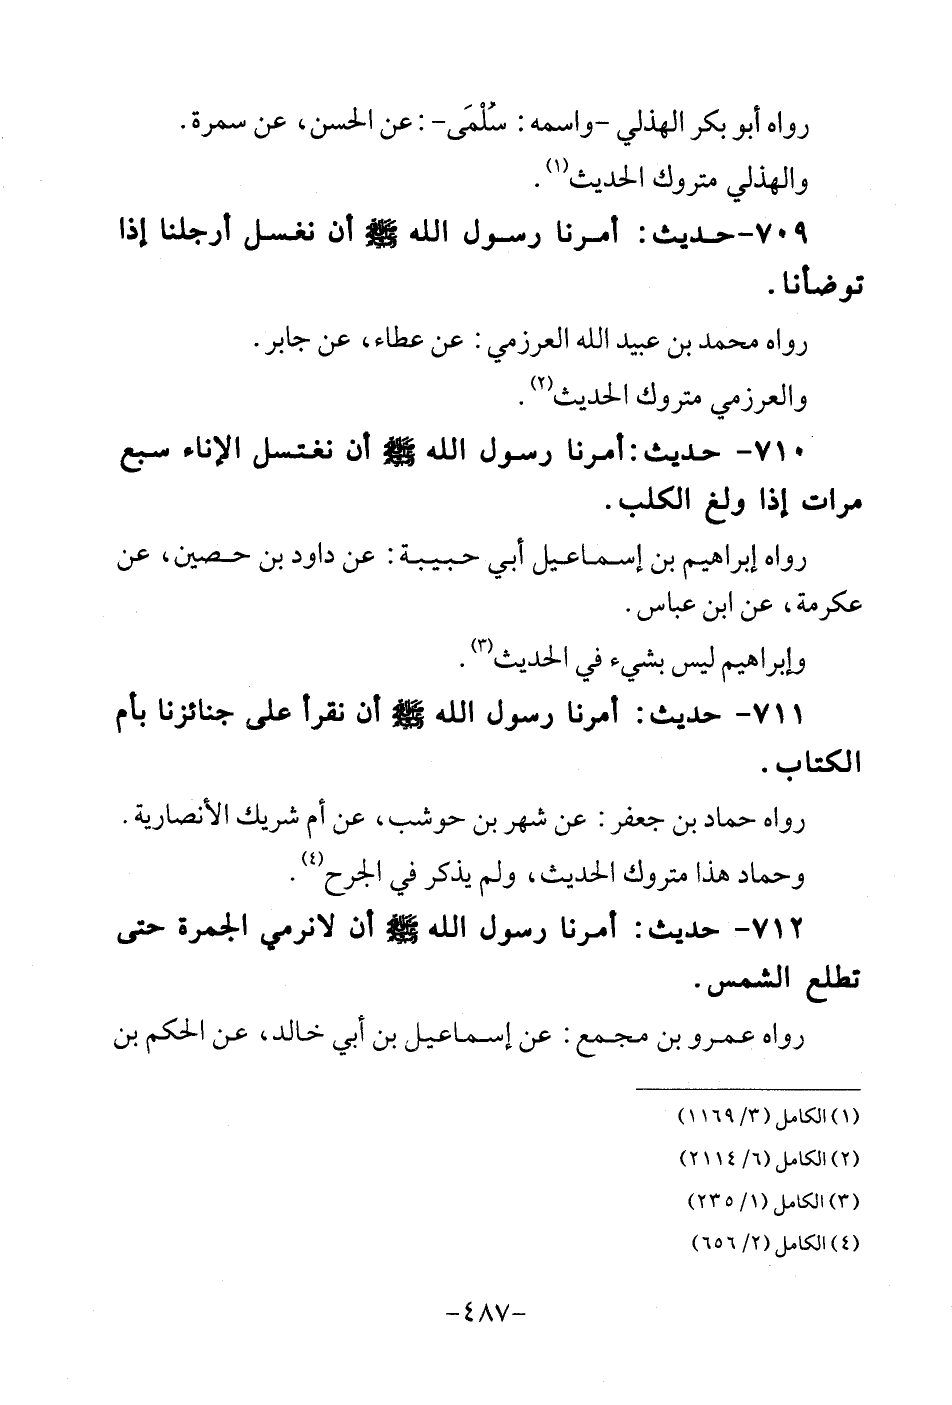 رواه أبو بكر الهذلي -واسمه: سُلْمَى-: عن الحسن، عن سمرة.
والهذلي متروك الحديث(١).
٧٠٩-حـديث: أمـرنا رسـول الله ﷺ أن نغسـل أرجلنا إذا
توضأنا.
رواه محمد بن عبيد الله العرزمي: عن عطاء، عن جابر.
والعرزمي متروك الحديث(٢).
٧١٠- حديث:أمرنا رسول الله ﷺ أن نغتسل الإناء سبع
مرات إذا ولغ الكلب.
رواه إبراهيم بن إسـماعيل أبي حبيبة: عن داود بن حصين، عن
عكرمة، عن ابن عباس.
وإبراهيم ليس بشيء في الحديث(٣).
٧١١- حديث: أمرنا رسول الله ﷺ أن نقرأ على جنائزنا بأم
الكتاب.
رواه حماد بن جعفر: عن شهر بن حوشب، عن أم شريك الأنصارية.
وحماد هذا متروك الحديث، ولم يذكر في الجرح(٤).
٧١٢- حديث: أمرنا رسول الله ﷺ أن لانرمي الجمرة حتى
تطلع الشمس.
رواه عمرو بن مجمع: عن إسماعيل بن أبي خالد، عن الحكم بن
(١) الكامل (٣/ ١١٦٩)
(٢) الكامل (٦/ ٢١١٤)
(٣) الكامل (١/ ٢٣٥)
(٤) الكامل (٢/ ٦٥٦)
-٤٨٧-